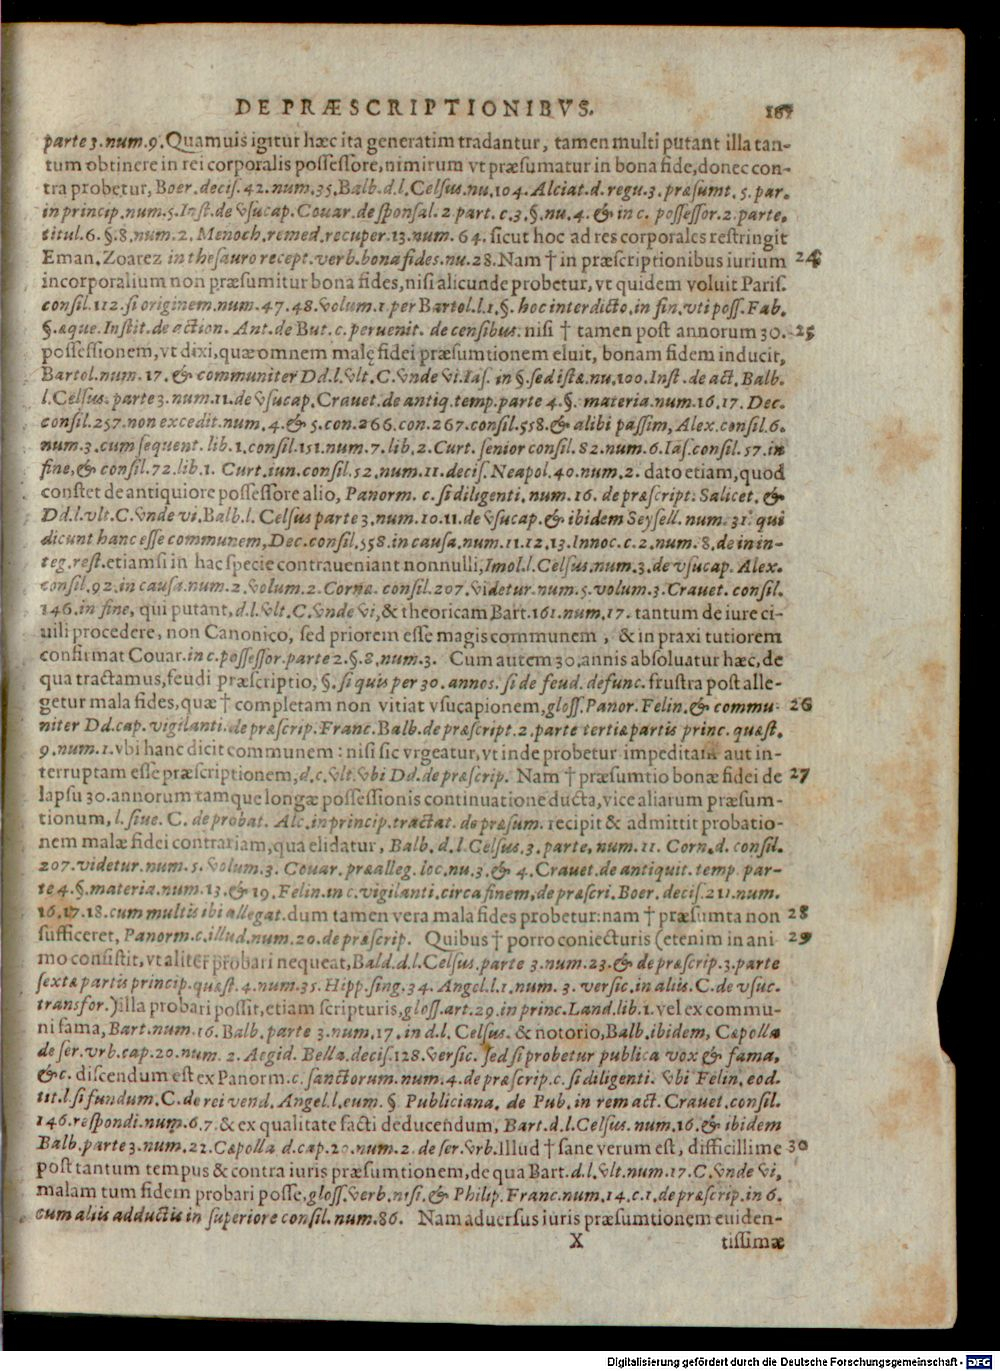 DE PRÆSCRIPTIONIBVS. 167
parte 3. num. 9. Quamuis igitur hæc ita generatim tradantur, tamen multi putant illa tan-
tum obtinere in rei corporalis possessore, nimirum vt præsumatur in bona fide, donec con-
tra probetur, Boer. decis. 42. num. 35, Balb. d. l. Celsus. nu. 104. Alciat. d. regu. 3. præsumt. 5. par.
in princip. num. 5. Inst. de vsucap. Couar. de sponsal. 2 part. c. 3. §. nu. 4. & in c. possessor. 2. parte.
titul. 6. §. 8. num. 2. Menoch. remed. recuper. 13. num. 64. sicut hoc ad res corporales restringit
Eman. Zoarez in thesauro recept. verb. bona fides. nu. 28. Nam † in præscriptionibus iurium 24
incorporalium non præsumitur bona fides, nisi alicunde probetur, vt quidem voluit Paris.
consil. 112. si originem. num. 47. 48. volum. 1. per Bartol. l. 1. §. hoc interdicto, in fin. vti poss. Fab.
§. æque. Instit. de action. Ant. de But. c. peruenit. de censibus. nisi † tamen post annorum 30. 25
possessionem, vt dixi, quæ omnem malę fidei præsumtionem eluit, bonam fidem inducit,
Bartol. num. 17. & communiter Dd. l. vlt. C. vnde vi. Ias. in §. sed istæ. nu. 100. Inst. de act. Balb.
l. Celsus. parte 3. num. 11. de vsucap. Crauet. de antiq. temp. parte 4. §. materia. num. 16. 17. Dec.
consil. 257. non excedit num. 4. & 5. con. 266. con. 267. consil. 558. & alibi passim, Alex. consil. 6.
num. 3. cum sequent. lib. 1. consil. 151. num. 7. lib. 2. Curt. senior consil. 82. num. 6. Ias. consil. 57. in
fine, & consil. 72. lib. 1. Curt. iun. consil. 52. num. 11. decis. Neapol. 40. num. 2. dato etiam, quod
constet de antiquiore possessore alio, Panorm. c. si diligenti. num. 16. de præscript. Salicet. &
Dd. l. vlt. C. vnde vi, Balb. l. Celsus parte 3. num. 10. 11. de vsucap. & ibidem Seysell. num. 31. qui
dicunt hanc esse communem, Dec. consil. 558. in causa. num. 11. 12. 13. Innoc. c. 2. num. 8. de in in-
teg. rest. etiamsi in hac specie contraueniant nonnulli, Imol. l. Celsus. num. 3. de vsucap. Alex.
consil. 92. in causa. num. 2. volum. 2. Corne. consil. 207. videtur. num. 5. volum. 3. Crauet. consil.
146. in fine, qui putant, d. l. vlt. C. vnde vi, & theoricam Bart. 161. num. 17. tantum de iure ci-
uili procedere, non Canonico, sed priorem esse magis communem, & in praxi tutiorem
confirmat Couar. in c. possessor. parte 2. §. 8. num. 3. Cum autem 30. annis absoluatur hæc, de
qua tractamus, feudi præscriptio, §. si quis per 30. annos. si de feud. defunc. frustra post alle-
getur mala fides, quæ † completam non vitiat vsucapionem, gloss. Panor. Felin. & commu- 26
niter Dd. cap. vigilanti. de præscrip. Franc. Balb. de præscript. 2. parte tertiæ partis princ. quæst.
9. num. 1. vbi hanc dicit communem: nisi sic vrgeatur, vt inde probetur impeditam aut in-
terruptam esse præscriptionem, d. c. vlt. vbi Dd. de præscrip. Nam † præsumtio bonæ fidei de 27
lapsu 30. annorum tamque longæ possessionis continuatione ducta, vice aliarum præsum-
tionum, l. siue. C. de probat. Alc. in princip. tractat. de præsum. recipit & admittit probatio-
nem malæ fidei contrariam, qua elidatur, Balb. d. l. Celsus. 3. parte, num. 11. Corn. d. consil.
207. videtur. num. 5. volum. 3. Couar. præalleg. loc. nu. 3. & 4. Crauet. de antiquit. temp. par-
te 4. §. materia. num. 13. & 19. Felin. in c. vigilanti. circa finem, de præscri. Boer. decis. 211. num.
16. 17. 18. cum multis ibi allegat. dum tamen vera mala fides probetur: nam † præsumta non 28
sufficeret, Panorm. c. illud. num. 20. de præscrip. Quibus † porro coniecturis (etenim in ani 29
mo consistit, vt aliter probari nequeat, Bald. d. l. Celsus. parte 3. num. 23. & de præscrip. 3. parte
sextæ partis princip. quæst. 4. num. 35. Hipp. sing. 34. Angel. l. 1. num. 3. versic. in aliis. C. de vsuc.
transfor.) illa probari possit, etiam scripturis, gloss. art. 29. in princ. Land. lib. 1. vel ex commu-
ni fama, Bart. num. 16. Balb. parte 3. num. 17. in d. l. Celsus. & notorio, Balb. ibidem, Cæpolla
de ser. vrb. cap. 20. num. 2. Aegid. Bella. decis. 128. versic. sed si probetur publica vox & fama,
&c. discendum est ex Panorm. c. sanctorum. num. 4. de præscrip. c. si diligenti. vbi Felin. eod.
tit. l. si fundum. C. de rei vend. Angel. l. eum. § Publiciana. de Pub. in rem act. Crauet. consil.
146. respondi. num. 6. 7. & ex qualitate facti deducendum, Bart. d. l. Celsus. num. 16. & ibidem
Balb. parte 3. num. 22. Cæpolla d. cap. 20. num. 2. de ser. vrb. Illud † sane verum est, difficillime 30
post tantum tempus & contra iuris præsumtionem, de qua Bart. d. l. vlt. num. 17. C. vnde vi,
malam tum fidem probari posse, gloss. verb. nisi. & Philip. Franc. num. 14. c. 1. de præscrip. in 6.
cum aliis adductis in superiore consil. num. 86. Nam aduersus iuris præsumtionem euiden-
X tissimæ
Digitalisierung gefördert durch die Deutsche Forschungsgemeinschaft - DFG